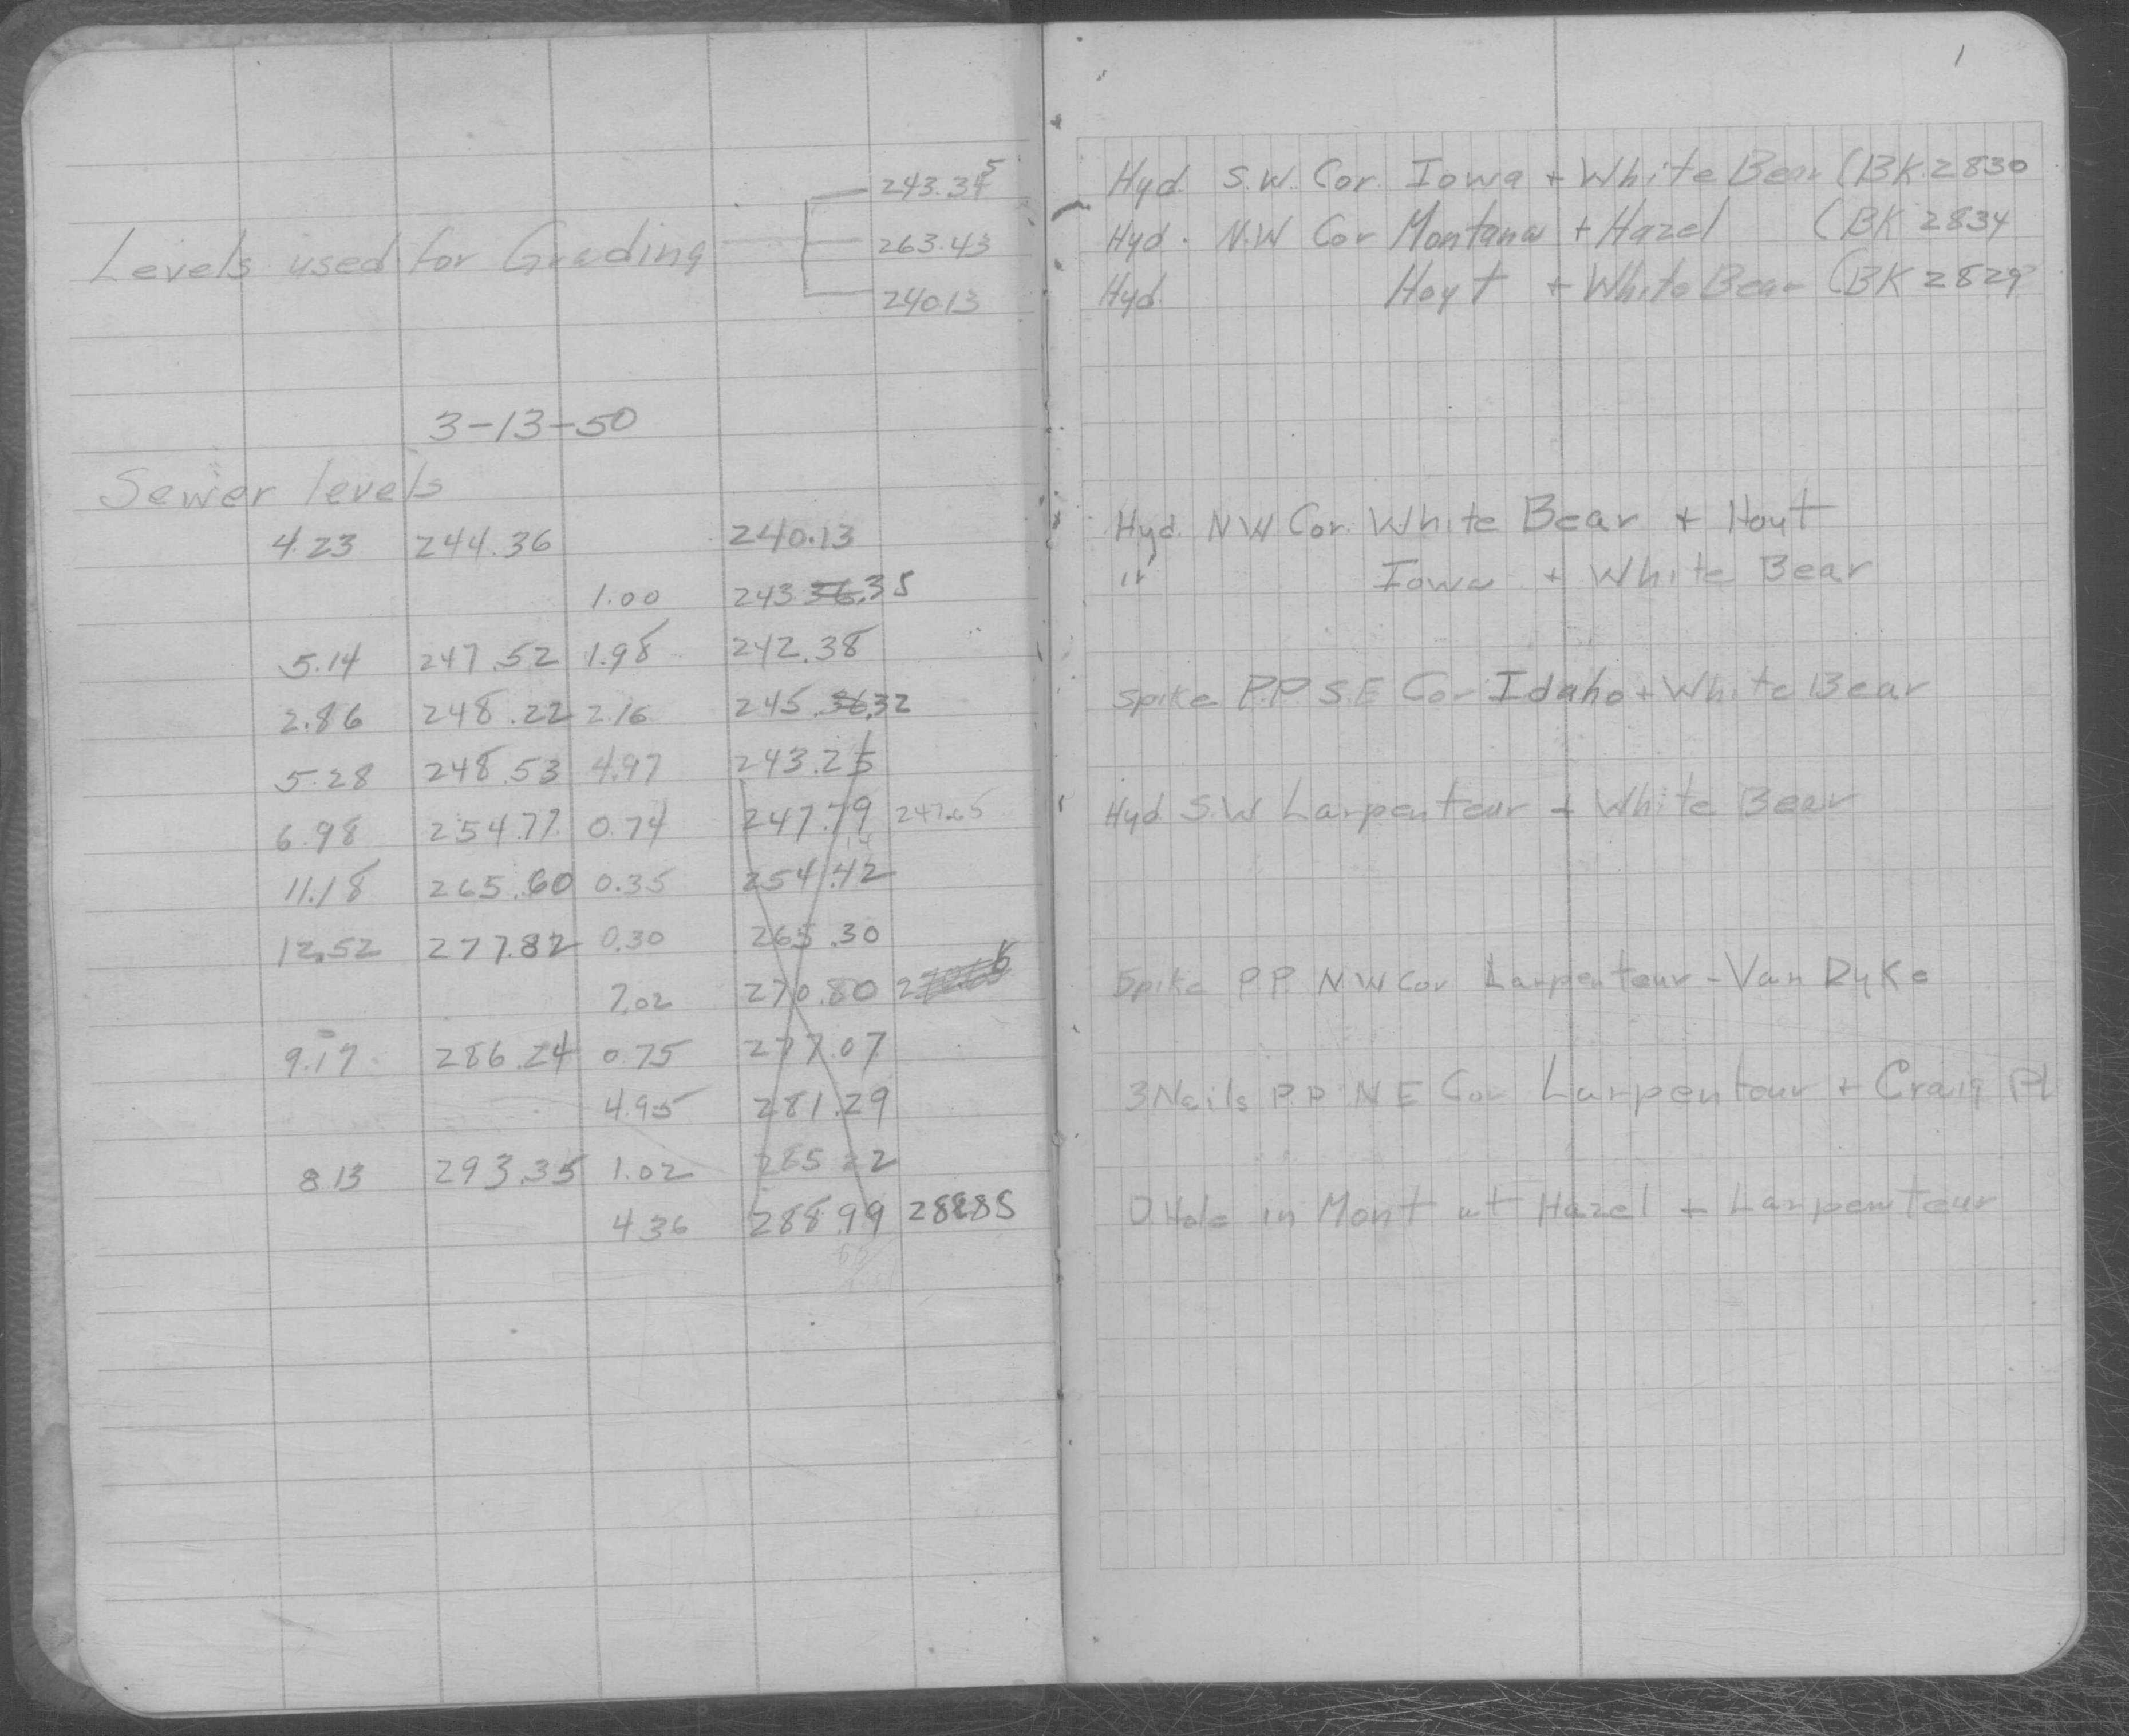 1
243.34 5 Hyd. S.W. Cor. Iowa + White Bear (BK. 2830
Levels used for Grading 263.43 Hyd. N.W Cor Montana + Hazel (BK 2834
240.13 Hyd. Hoyt + White Bear (BK 2829
3-13-50
Sewer levels
4.23 244.36 240.13 Hyd. NW Cor. White Bear + Hoyt
1.00 243.36.35 " Iowa + White Bear
5.14 247.52 1.98 242.38
2.86 248.22 2.16 245.36.32 Spike P.P S.E Cor Idaho + White Bear
5.28 248.53 4.97 243.25
6.98 254.77 0.74 247.79 247.65 Hyd S.W Larpenteur + White Bear
11.18 265.60 0.35 254.42
12.52 277.82 0.30 265.30
7.02 270.80 Spike P.P. N W Cor Larpenteur - Van Dyke
9.17 286.24 0.75 277.07
4.95 281.29 3 Nails P.P N E Cor Larpenteur + Craig Pl
8.13 293.35 1.02 285.22
4.36 288.99 288.85 D. Hole in Mont at Hazel + Larpenteur